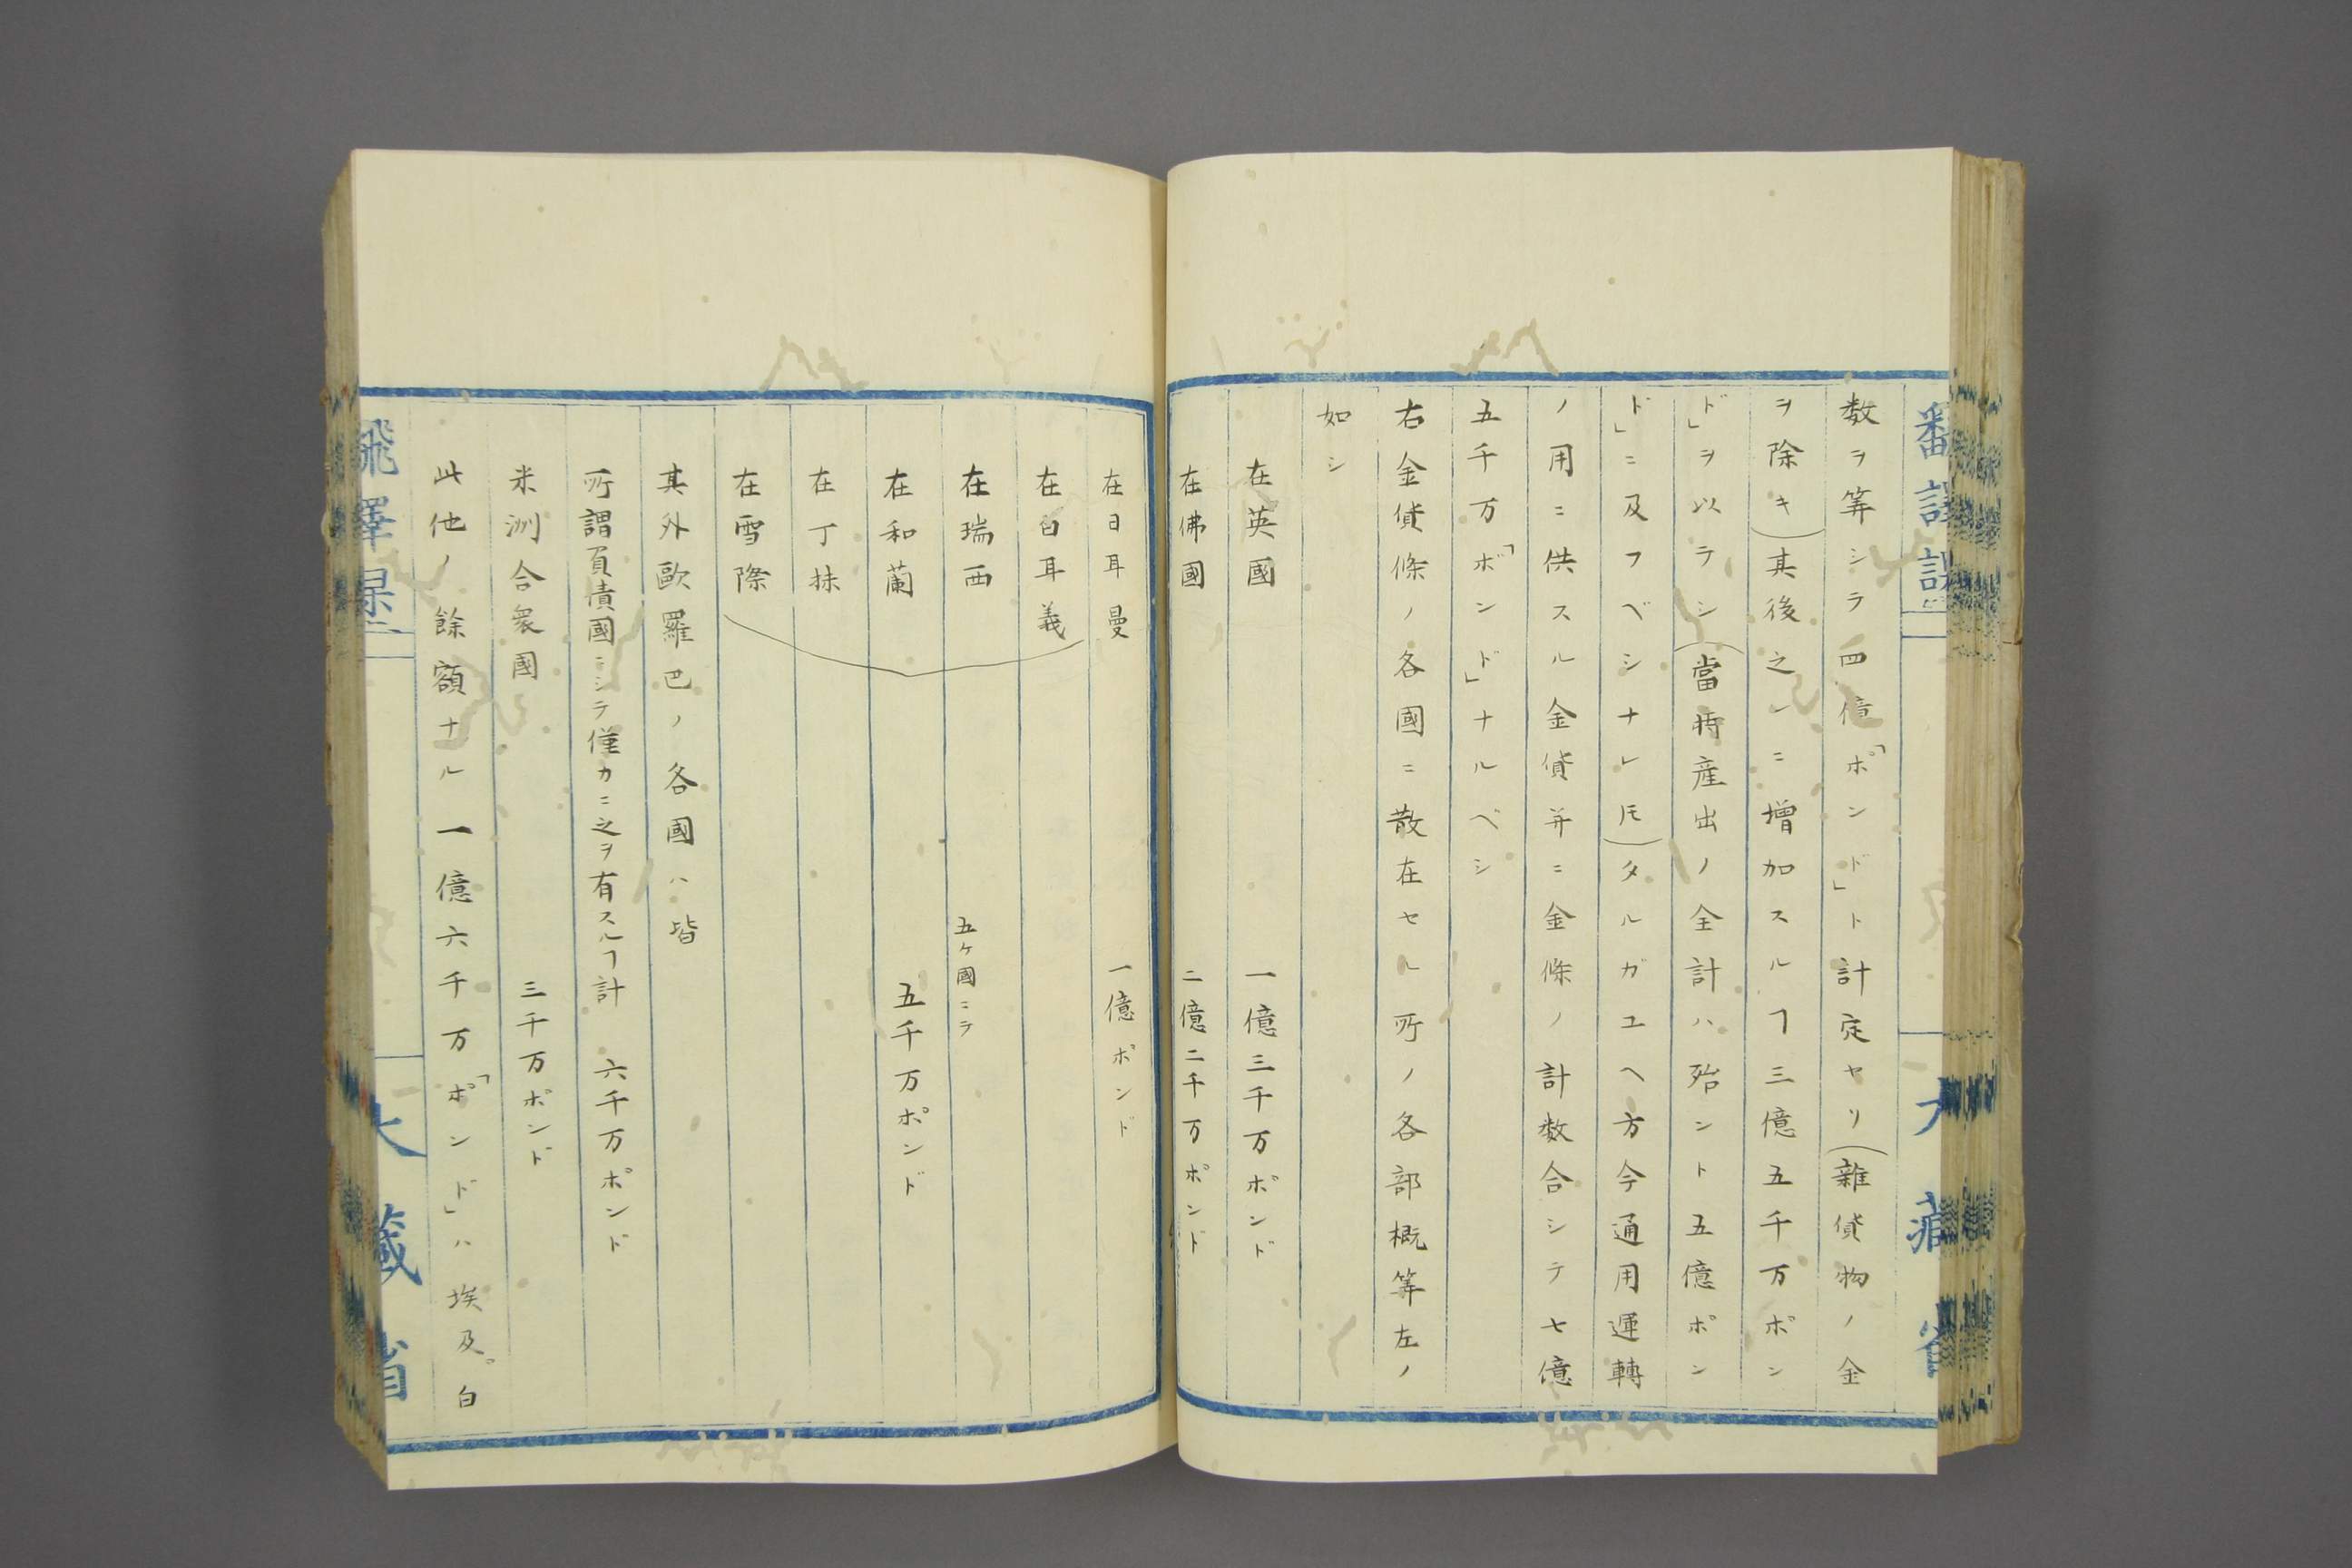 数ヲ筭シテ四億「ポンド」ト計定セリ(雜貨物ノ金
ヲ除キ)其後之レニ増加スルヿ三億五千万ポン
ド」ヲ以テシ(當時産出ノ全計ハ殆ント五億ポン
ド」ニ及フベシナレ𪜈)タルガユヘ方今通用運轉
ノ用ニ供スル金貨并ニ金條ノ計数合シテ七億
五千万「ポンド」ナルベシ
右金貨條ノ各國ニ散在セル所ノ各部概筭左ノ
如シ
在英國 一億三千万ポンド
在佛國 二億二千万ポンド
在日耳曼 一億ポンド
在白耳義
在瑞西 五ケ國ニテ
在和蘭 五千万ポンド
在丁抹
在雪際
其外歐羅巴ノ各國ハ皆
所謂負債國ニシテ僅カニ之ヲ有スルヿ計 六千万ポンド
米洲合衆國 三千万ポンド
此他ノ餘額ナル一億六千万「ポンド」ハ埃及。白
大藏省